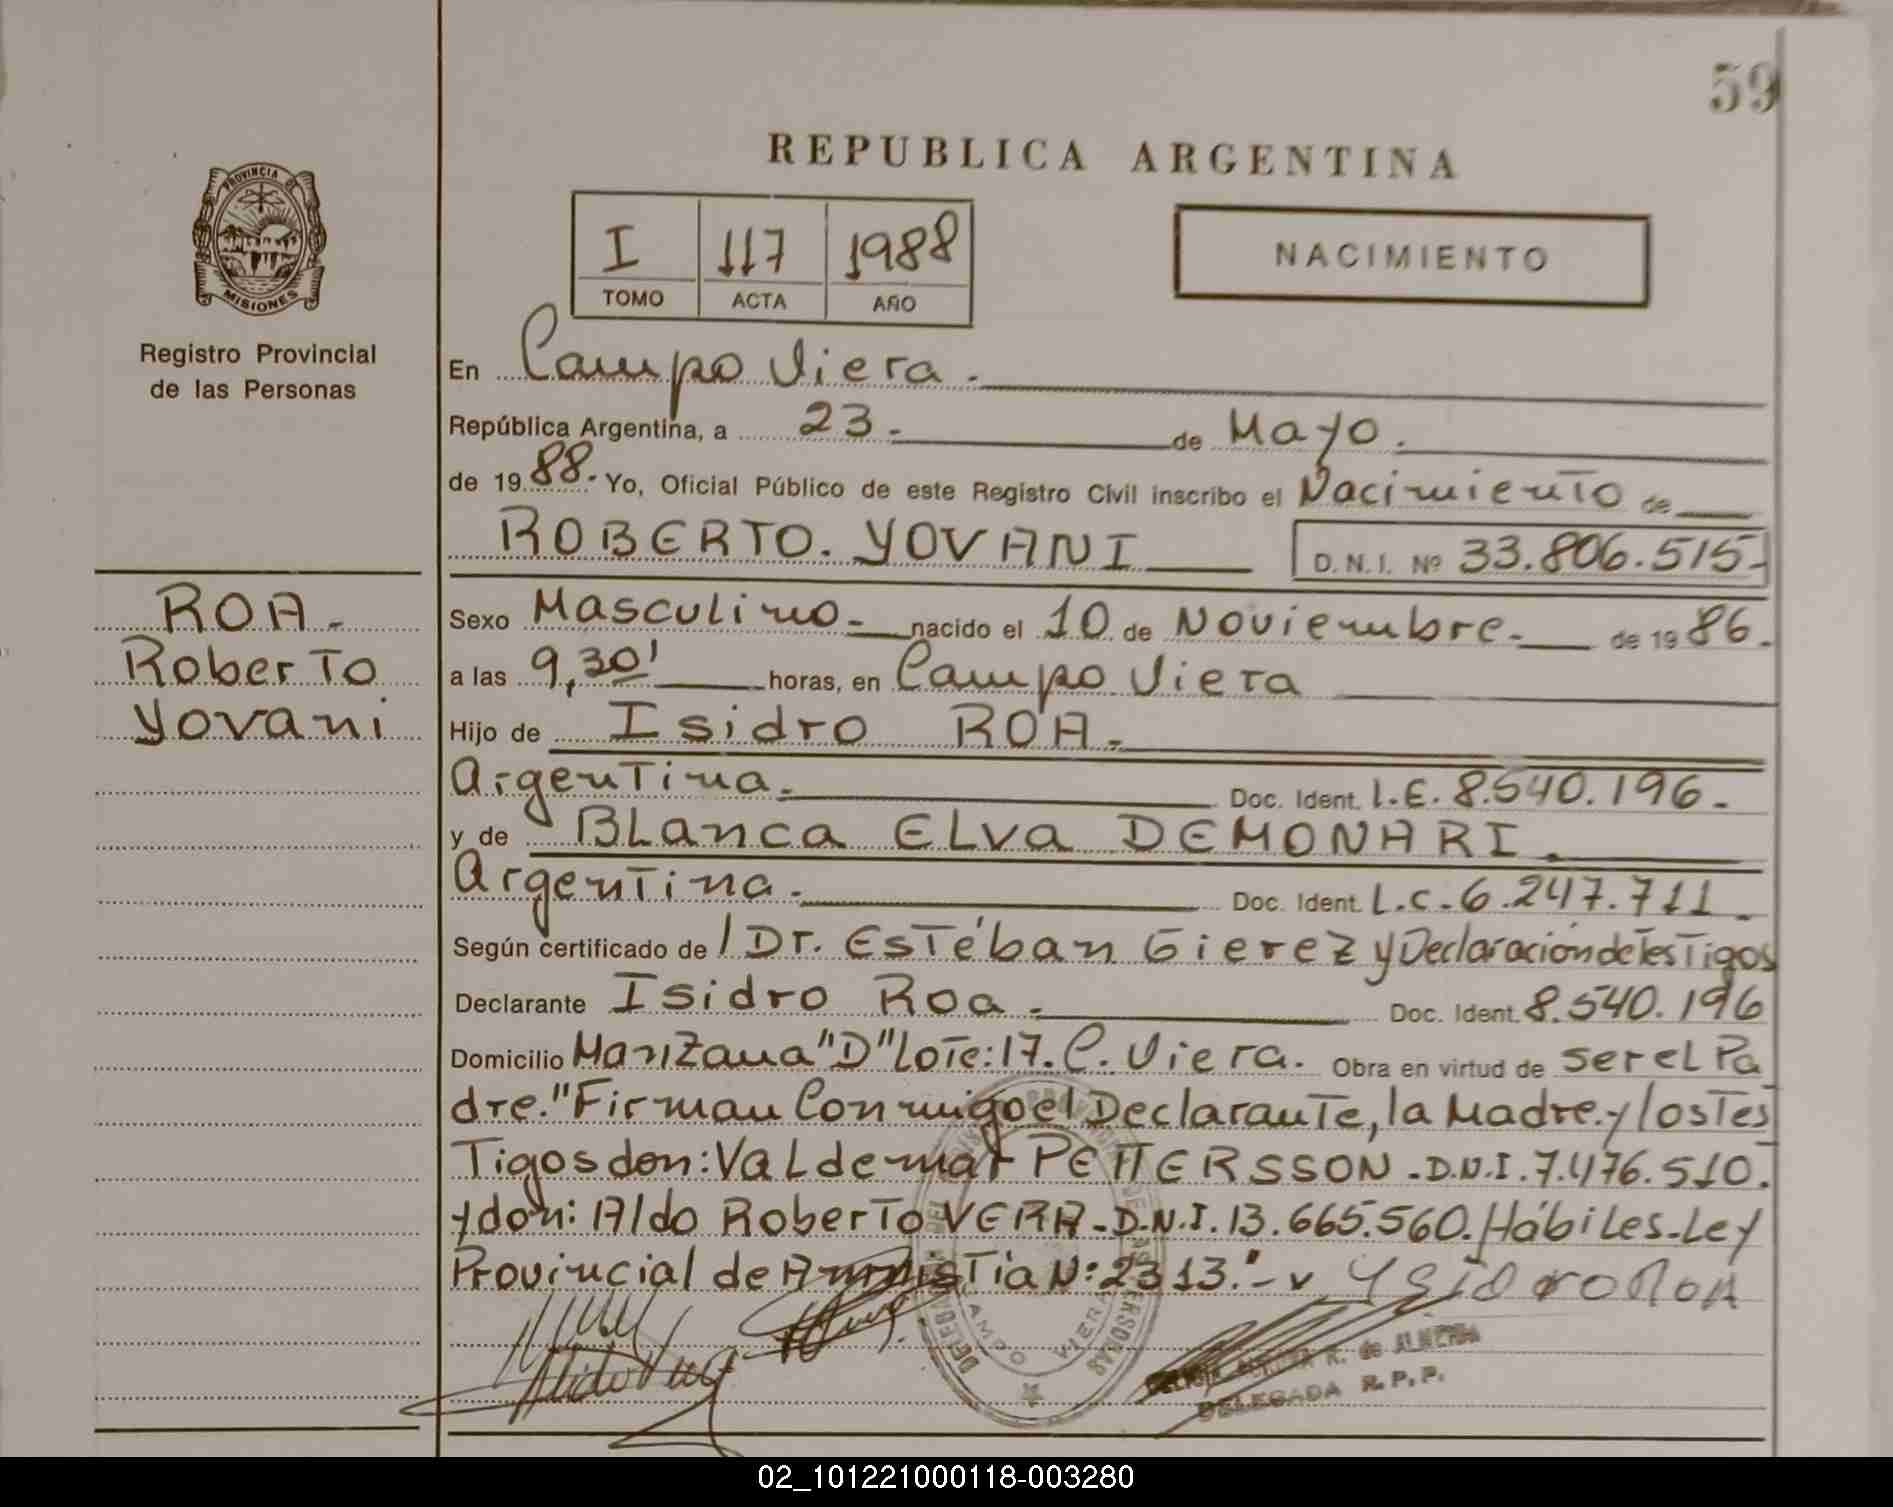 59
REPUBLICA ARGENTINA
PROVINCIA DE
MISIONES
Registro Provincial
de las Personas
I 117 1988
TOMO ACTA AÑO
NACIMIENTO
En Campo Viera.
República Argentina, a 23.- de Mayo.
de 19 88.- Yo, Oficial Público de este Registro Civil inscribo el Nacimiento de
ROBERTO. YOVANI D.N.I. Nº 33.806.515-
ROA.-
Roberto
Yovani
Sexo Masculino.- nacido el 10 de Noviembre.- de 19 86.
a las 9,30' horas, en Campo Viera
Hijo de Isidro ROA.-
Argentina.- Doc. Ident. L.E. 8.540.196.-
y de BLanca ELva DEMONARI.
Argentina.- Doc. Ident. L.C.6.247.711.-
Según certificado de / Dr. Estéban Gierez y Declaración de Testigos
Declarante Isidro Roa.- Doc. Ident. 8.540.196
Domicilio Manzana "D" Lote:17. C. Viera. Obra en virtud de ser el Pa
dre." Firman Conmigo el Declarante, la Madre y los Tes
Tigos don: VaLdemar PETTERSSON.-D.N.I.7.476.510.
y don: Aldo Roberto VERA-D.N.I. 13.665.560. Hábiles-Ley
Provincial de Amnistía N: 2313."- v YsidroRoa
CAMPO VIERA
R. de ALMEIDA
DELEGADA R.P.P.
02_101221000118-003280